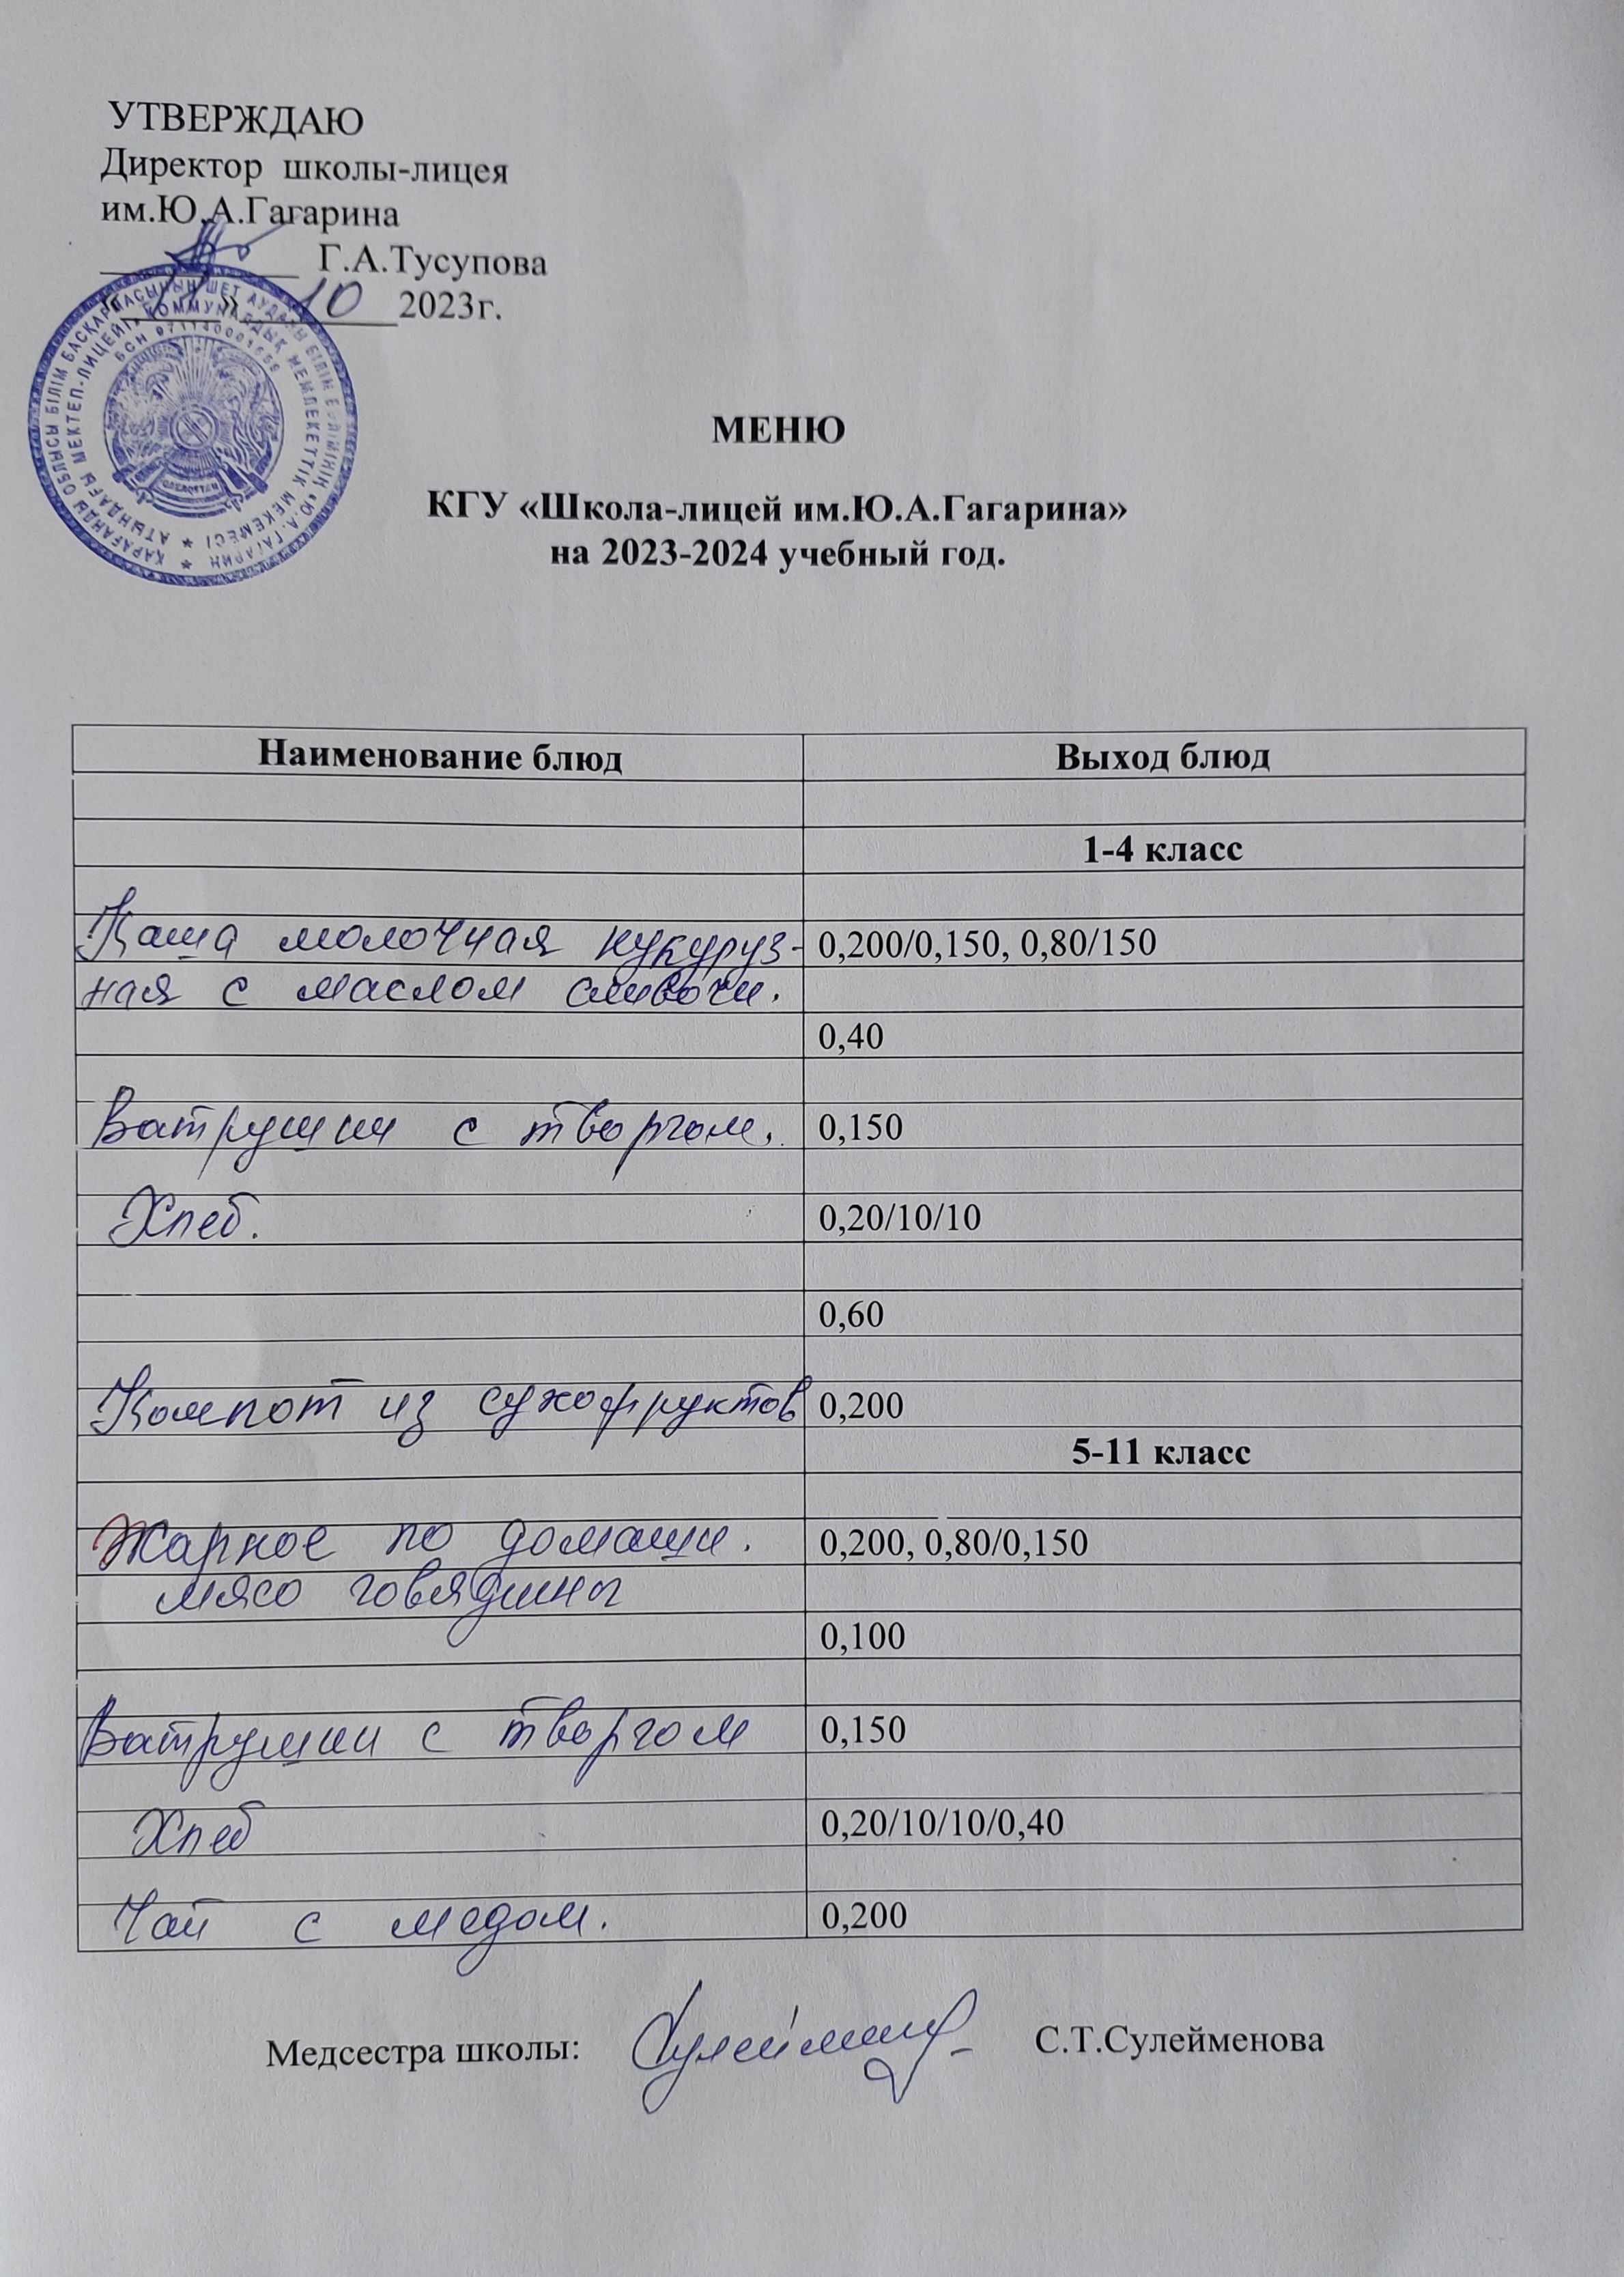 УТВЕРЖДАЮ
Директор школы-лицея
им.Ю.А.Гагарина
Г.А.Тусупова
« » 10 2023г.
МЕНЮ
КГУ «Школа-лицей им.Ю.А.Гагарина»
на 2023-2024 учебный год.
Наименование блюд Выход блюд
1-4 класс
Каша молочная кукуруз- 0,200/0,150, 0,80/150
ная с маслом сливочн.
0,40
Ватрушки с творгом. 0,150
Хлеб. 0,20/10/10
0,60
Компот из сухофруктов 0,200
5-11 класс
Жарное по домашн. 0,200, 0,80/0,150
мясо говядины
0,100
Ватрушки с творгом 0,150
Хлеб 0,20/10/10/0,40
Чай с медом. 0,200
Медсестра школы: С.Т.Сулейменова